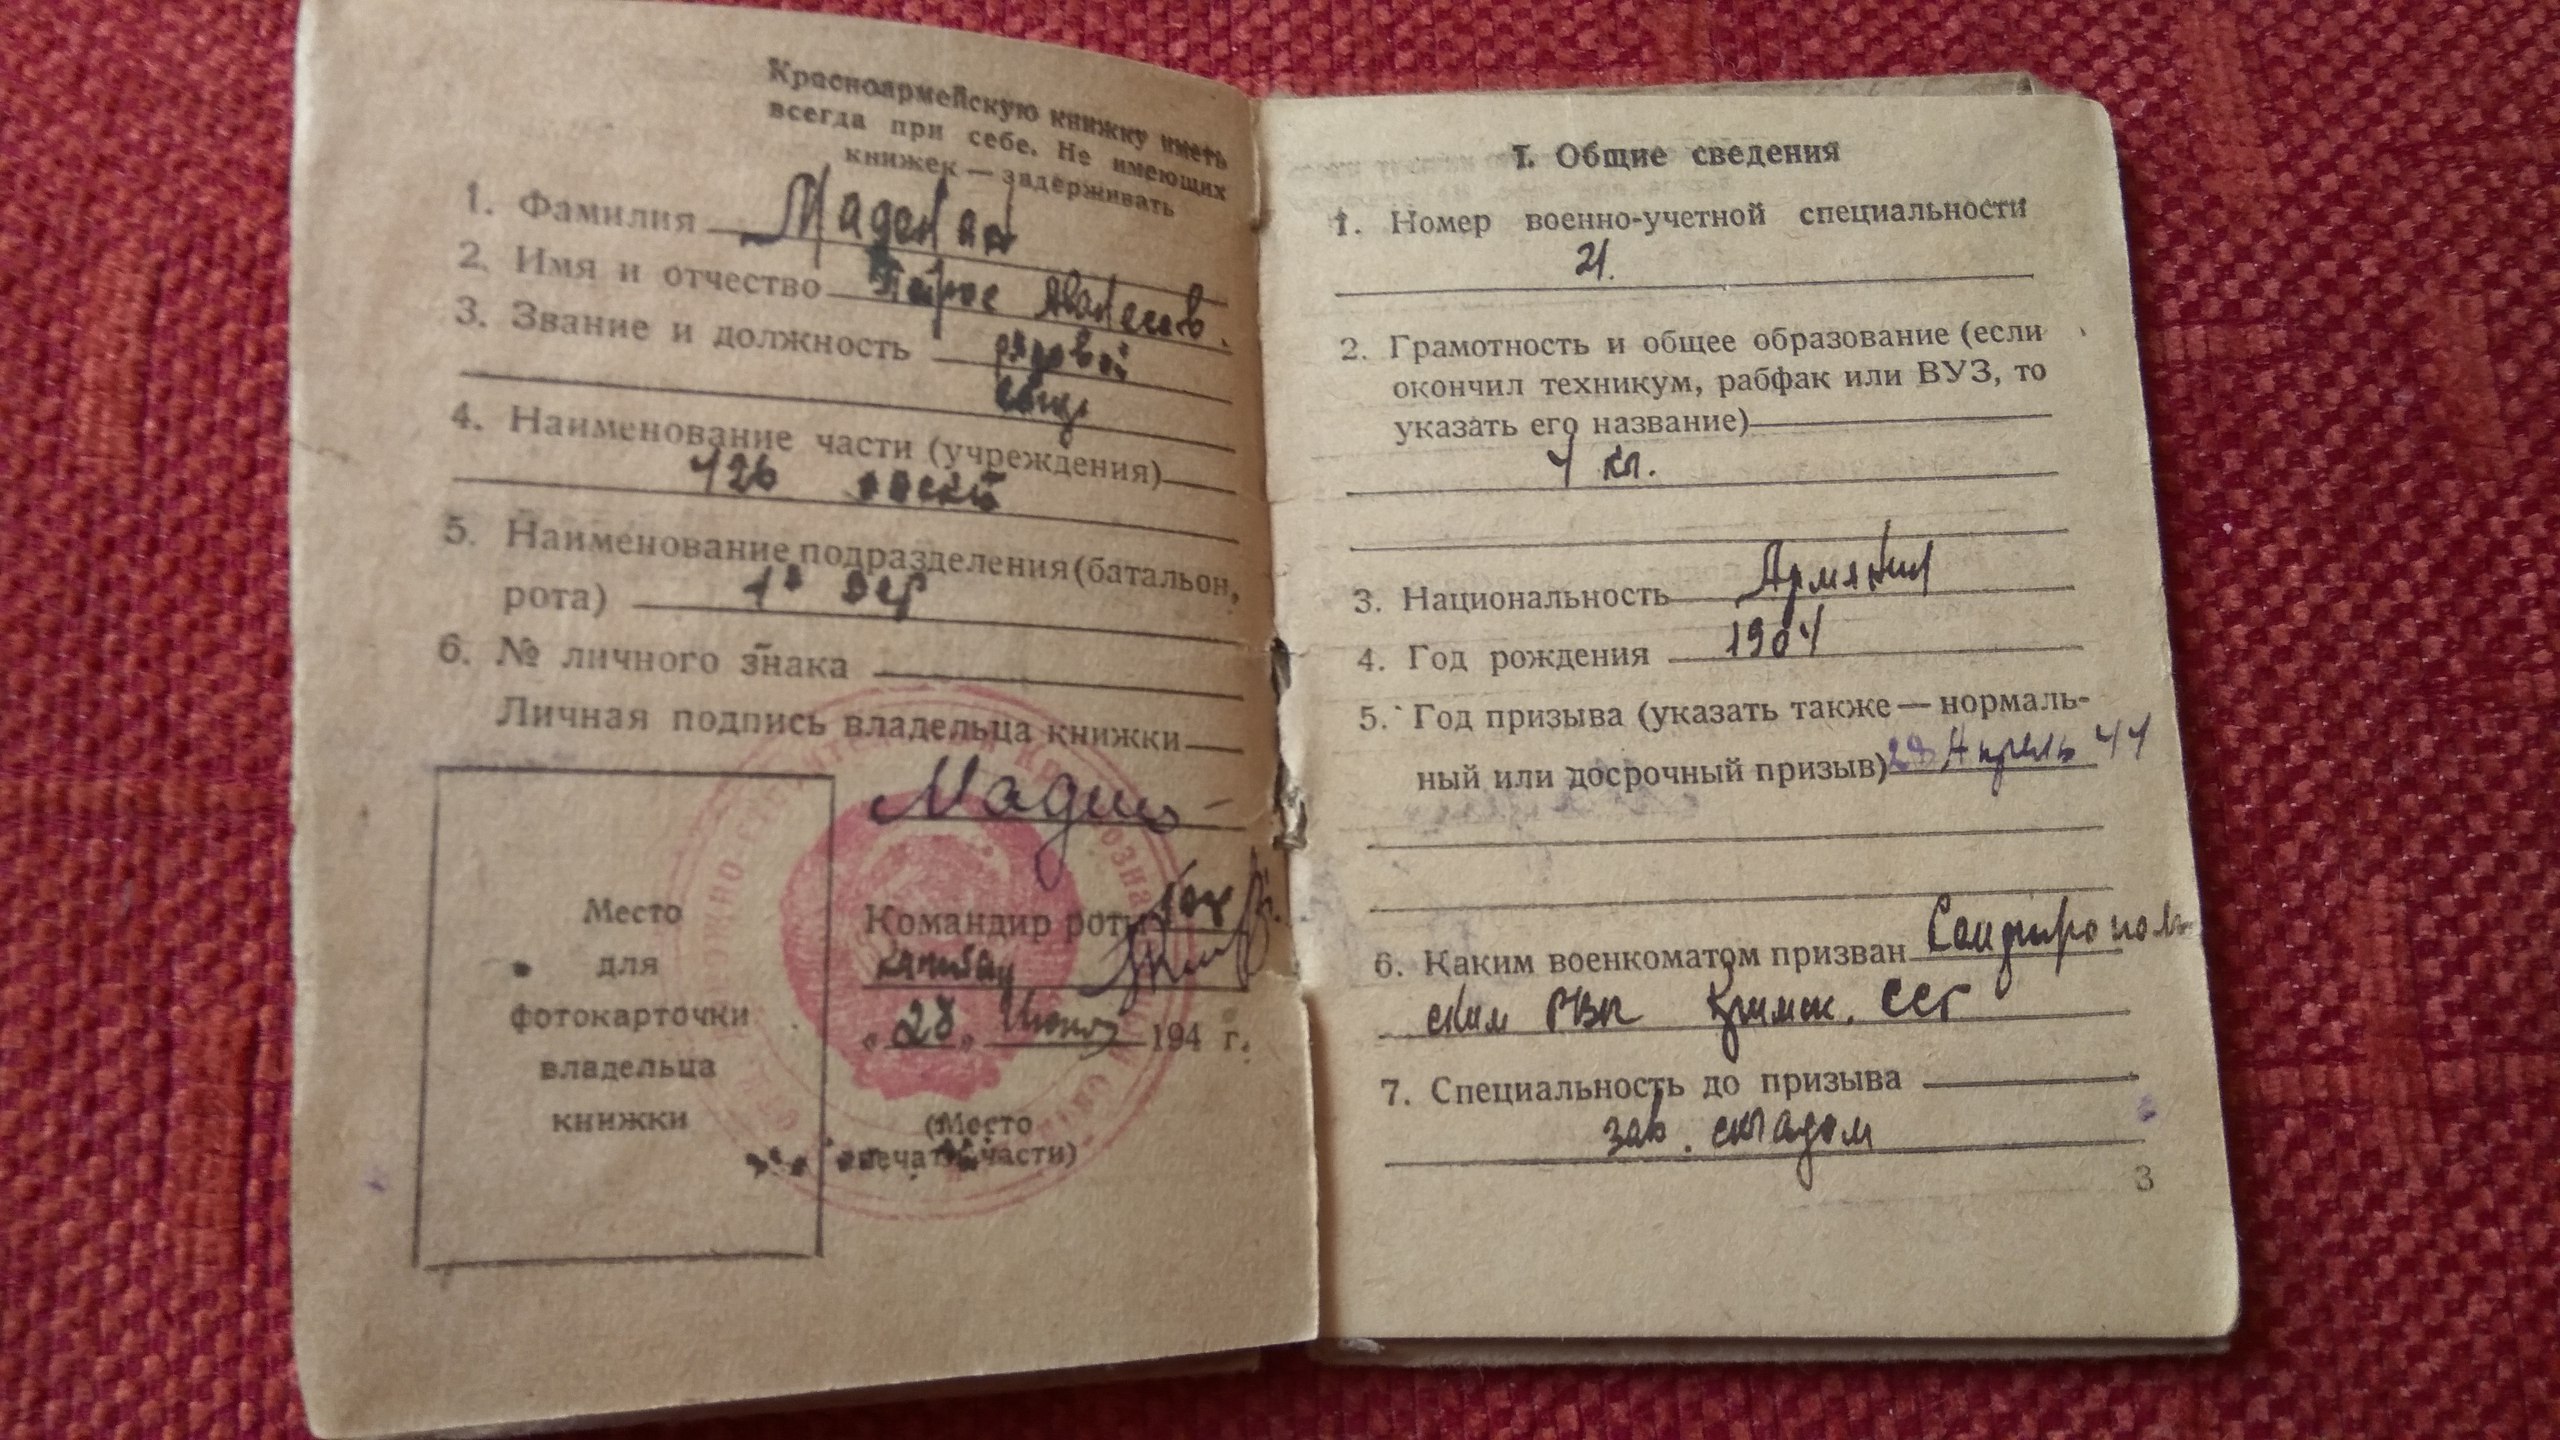 Красноармейскую книжку иметь
всегда при себе. Не имеющих
книжек — задерживать
1. Фамилия
2. Имя и отчество Петрос
3. Звание и должность рядовой
4. Наименование части (учреждения)
126
5. Наименование подразделения (батальон,
рота) 1я
6. № личного знака
Личная подпись владельца книжки
Место
для
фотокарточки
владельца
книжки
Командир роты
капитан
„28„ Июня 194 г.
(Место
печати части)
I. Общие сведения
1. Номер военно-учетной специальности
21.
2. Грамотность и общее образование (если
окончил техникум, рабфак или ВУЗ, то
указать его название)
4 кл.
3. Национальность Армянин
4. Год рождения 1904
5. Год призыва (указать также — нормаль-
ный или досрочный призыв) 28 Апрель 44
6. Каким военкоматом призван Симферополь
ским РВК Крымск. ССР
7. Специальность до призыва
зав. складом
3